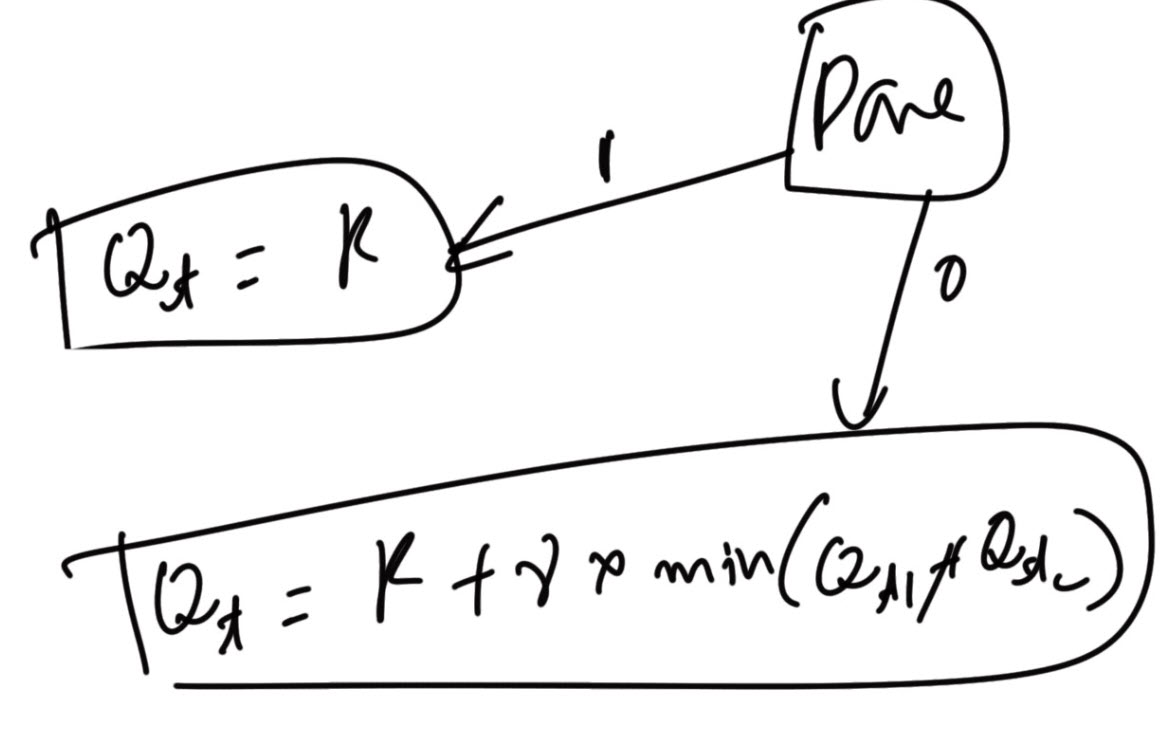 Done
1
Q_t = R
0
Q_t = R + γ × min(Q_t1, Q_t2)